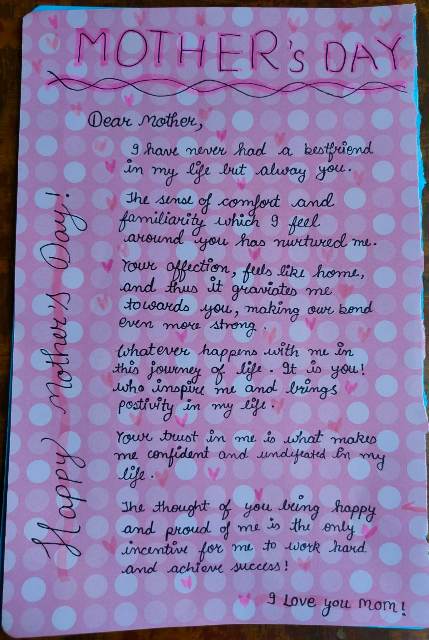 MOTHER's DAY
Dear Mother,
I have never had a bestfriend
in my life but alway you.
The sense of comfort and
familiarity which I feel
around you has nurtured me.
Your affection, feels like home,
and thus it graviates me
towards you, making our bond
even more strong.
Whatever happens with me in
this journey of life. It is you!
who inspire me and brings
postivity in my life.
Your trust in me is what makes
me confident and undefeated In my
life.
The thought of you being happy
and proud of me is the only
incentive for me to work hard
and achieve success!
I Love you Mom!
Happy Mother's Day!